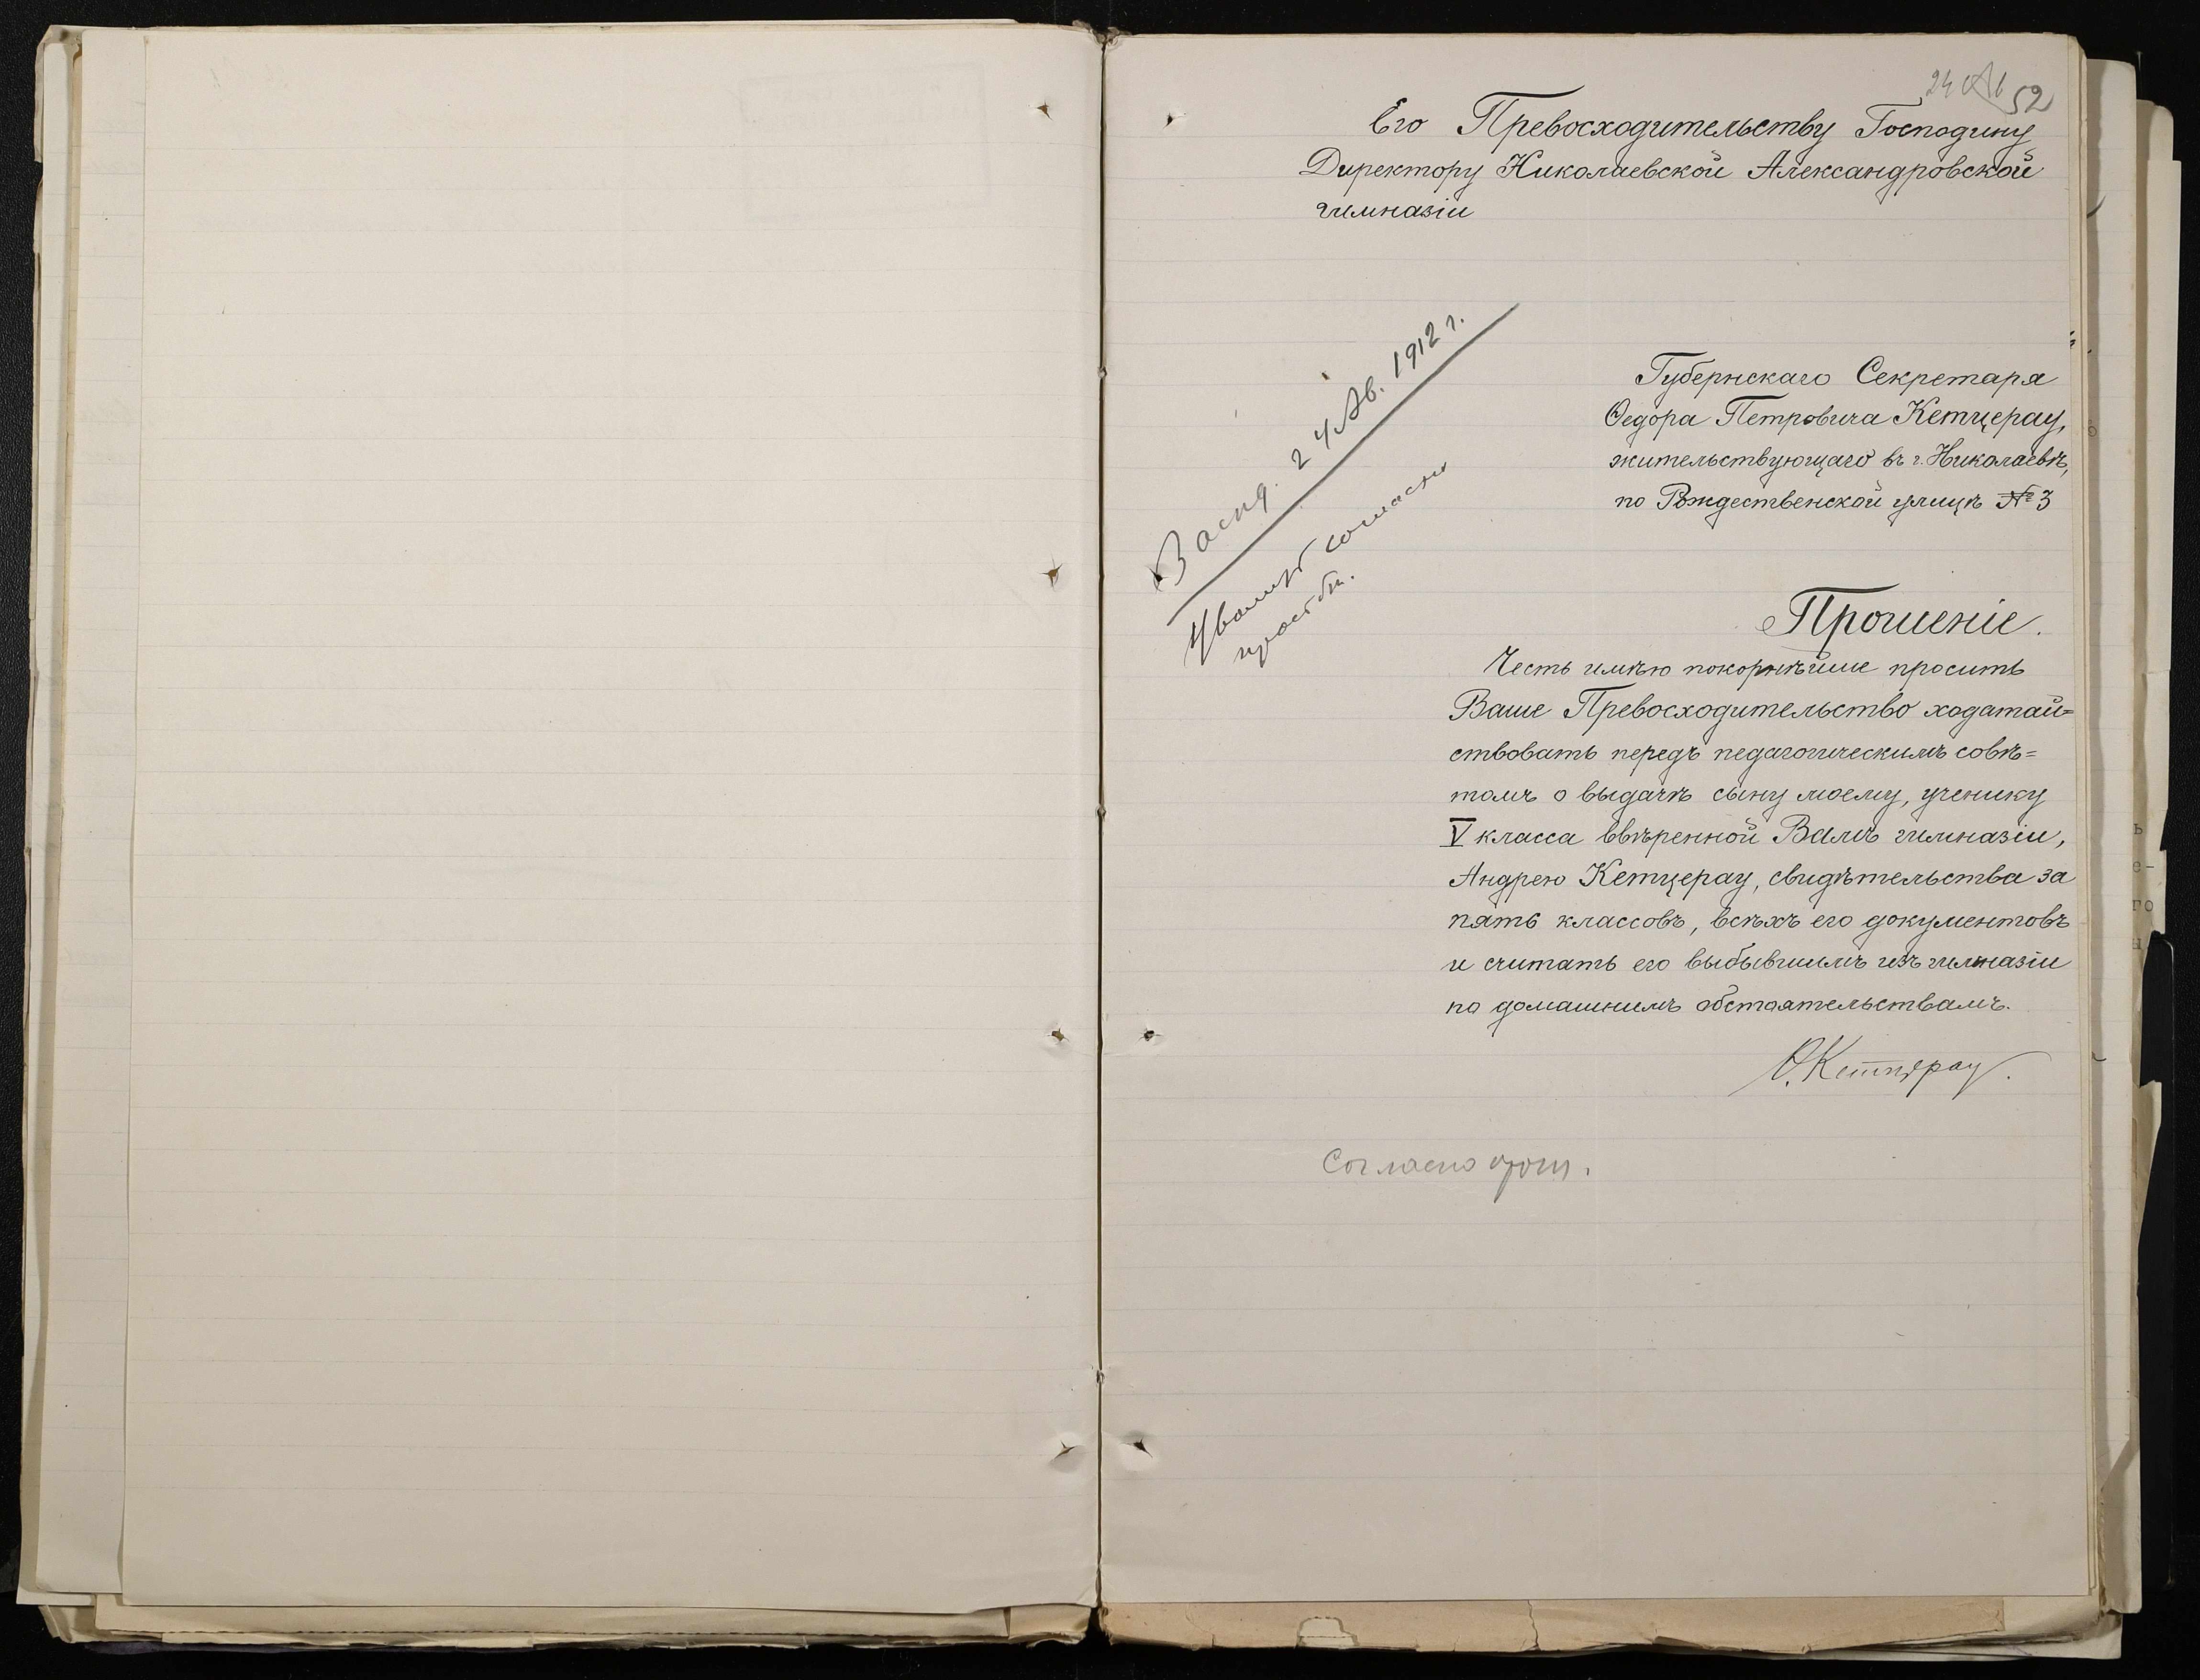 24 Ав
52
Его Превосходительству Господину
Директору Николаевской Александровской
гимназіи
Засѣд. 24 Ав. 1912 г.
согласно
просьбѣ.
Губернскаго Секретаря
Ѳедора Петровича Кетцерау,
жительствующаго въ г. Николаевѣ,
по Рождественской улицѣ № 3
Прошеніе.
Честь имѣю покорнѣйше просить
Ваше Превосходительство ходатай=
ствовать передъ педагогическимъ совѣ=
томъ о выдачѣ сыну моему, ученику
V класса ввѣренной Вамъ гимназіи,
Андрею Кетцерау, свидѣтельства за
пять классовъ, всѣхъ его документовъ
и считать его выбывшимъ изъ гимназіи
по домашнимъ обстоятельствамъ.
Ѳ. Кетцерау.
Согласно прош.